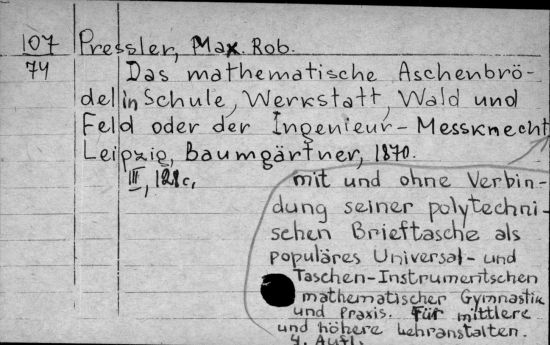 107
74
Pressler, Max. Rob.
Das mathematische Aschenbrö-
del in Schule, Werkstatt, Wald und
Feld oder der Ingenieur-Messknecht
Leipzig, Baumgärtner, 1870.
III, 121c,
mit und ohne Verbin-
dung seiner polytechni-
schen Brieftasche als
populäres Universal- und
Taschen-Instrumentschen
mathematischer Gymnastik
und Praxis. Für mittlere
und höhere Lehranstalten.
4. Aufl.